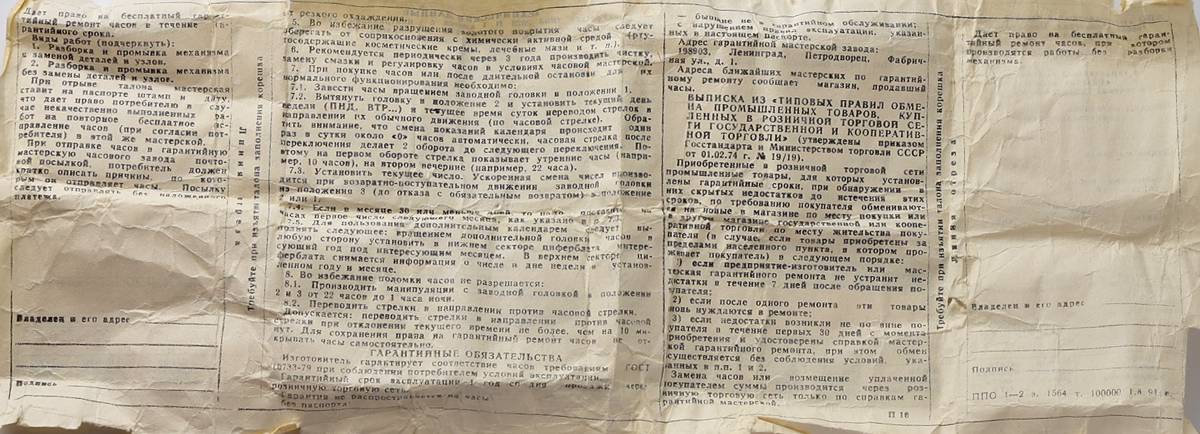 Дает право на бесплатный гаран-
тийный ремонт часов в течение га-
рантийного срока.
Виды работ (подчеркнуть):
1. Разборка и промывка механизма
с заменой деталей и узлов.
2. Разборка и промывка механизма
без замены деталей и узлов.
При отрыве талона мастерская
ставит на паспорте штамп и дату,
что дает право потребителю в слу-
чае некачественно выполненных ра-
бот на повторное бесплатное ис-
правление часов (при согласии пот-
ребителя) в этой же мастерской.
При отправке часов в гарантийную
мастерскую часового завода почто-
вой посылкой, потребитель должен
кратко описать причины, по кото-
рым он отправляет часы. Посылку
следует отправлять без наложенного
платежа.
Владелец и его адрес
Подпись
Линия отреза
Требуйте при изъятии талона заполнения корешка
от резкого охлаждения.
5. Во избежание разрушения золотого покрытия часы следует
оберегать от соприкосновения с химически активной средой (рту-
тосодержание косметические кремы, лечебные мази и т. п.).
6. Рекомендуется периодически через 3 года производить чистку,
замену смазки и регулировку часов в условиях часовой мастерской.
7. При покупке часов или после длительной остановки для их
нормального функционирования необходимо:
7.1. Завести часы вращением заводной головки в положении 1.
7.2. Вытянуть головку в положение 2 и установить текущий день
недели (ПНД, ВТР...) и текущее время суток переводом стрелок в
направлении их обычного движения (по часовой стрелке). Обра-
тить внимание, что смена показаний календаря происходит один
раз в сутки около «0» часов автоматически, часовая стрелка после
переключения делает 2 оборота до следующего переключения. По-
этому на первом обороте стрелка показывает утренние часы (напри-
мер, 10 часов), на втором вечерние (например, 22 часа).
7.3. Установить текущее число. Ускоренная смена чисел произво-
дится при возвратно-поступательном движении заводной головки
из положения 3 (до отказа с обязательным возвратом) в положение
2 или 1.
7.4. Если в месяце 30 или меньше дней, то надо
часах первое число следующего месяца, как указано в п. 7.3.
7.5. Для пользования дополнительным календарем следует вы-
полнять следующее: вращением дополнительной головки часов в
любую сторону установить в нижнем секторе циферблата интере-
сующий год под интересующим месяцем. В верхнем секторе ци-
ферблата снимается информация о числе и дне недели в установ-
ленном году и месяце.
8. Во избежание поломки часов не разрешается:
8.1. Производить манипуляции с заводной головкой в положении
2 и 3 от 22 часов до 1 часа ночи.
8.2. Переводить стрелки в направлении против часовой стрелки.
Допускается: переводить стрелки в направлении против часовой
стрелки при отклонении текущего времени не более, чем на 10 ми-
нут. Для сохранения права на гарантийный ремонт часов не от-
крывать часы самостоятельно.
ГАРАНТИЙНЫЕ ОБЯЗАТЕЛЬСТВА
Изготовитель гарантирует соответствие часов требованиям ГОСТ
10733-79 при соблюдении потребителем условий эксплуатации.
Гарантийный срок эксплуатации 1 год со дня продажи через
розничную торговую сеть.
Гарантия не распространяется на часы
без паспорта
бывшие не в гарантийном обслуживании;
с нарушением правил эксплуатации, указан-
ных в настоящем паспорте.
Адрес гарантийной мастерской завода:
198903, Ленинград, Петродворец, Фабрич-
ная ул., д. 1.
Адреса ближайших мастерских по гарантий-
ному ремонту сообщает магазин, продавший
часы.
ВЫПИСКА ИЗ «ТИПОВЫХ ПРАВИЛ ОБМЕ-
НА ПРОМЫШЛЕННЫХ ТОВАРОВ, КУП-
ЛЕННЫХ В РОЗНИЧНОЙ ТОРГОВОЙ СЕ-
ТИ ГОСУДАРСТВЕННОЙ И КООПЕРАТИВ-
НОЙ ТОРГОВЛИ» (утверждены приказом
Госстандарта и Министерством торговли СССР
от 01.02.74 г. № 19/19).
Приобретенные в розничной торговой сети
промышленные товары, для которых установ-
лены гарантийные сроки, при обнаружении в
них скрытых недостатков до истечения этих
сроков, по требованию покупателя обменивают-
ся на новые в магазине по месту покупки или
в другом магазине государственной или коопе-
ративной торговли по месту жительства поку-
пателя (в случае, если товары приобретены за
пределами населенного пункта, в котором про-
живает покупатель) в следующем порядке:
1) если предприятие-изготовитель или мас-
терская гарантийного ремонта не устранит не-
достатки в течение 7 дней после обращения по-
купателя;
2) если после одного ремонта эти товары
вновь нуждаются в ремонте;
3) если недостатки возникли не по вине по-
купателя в течение первых 30 дней с момента
приобретения и удостоверены справкой мастер-
ской гарантийного ремонта, при этом обмен
осуществляется без соблюдения условий, ука-
занных в п.п. 1 и 2.
Замена часов или возмещение уплаченной
покупателем суммы производится через роз-
ничную торговую сеть только по справкам га-
рантийной мастерской.
П 16
Требуйте при изъятии талона заполнения корешка
Линия отреза
Дает право на бесплатный гаран-
тийный ремонт часов, при котором
производятся работы без разборки
механизма.
Владелец и его адрес
Подпись
ППО 1—2 з. 1564 т. 100000 1.8.91 г.